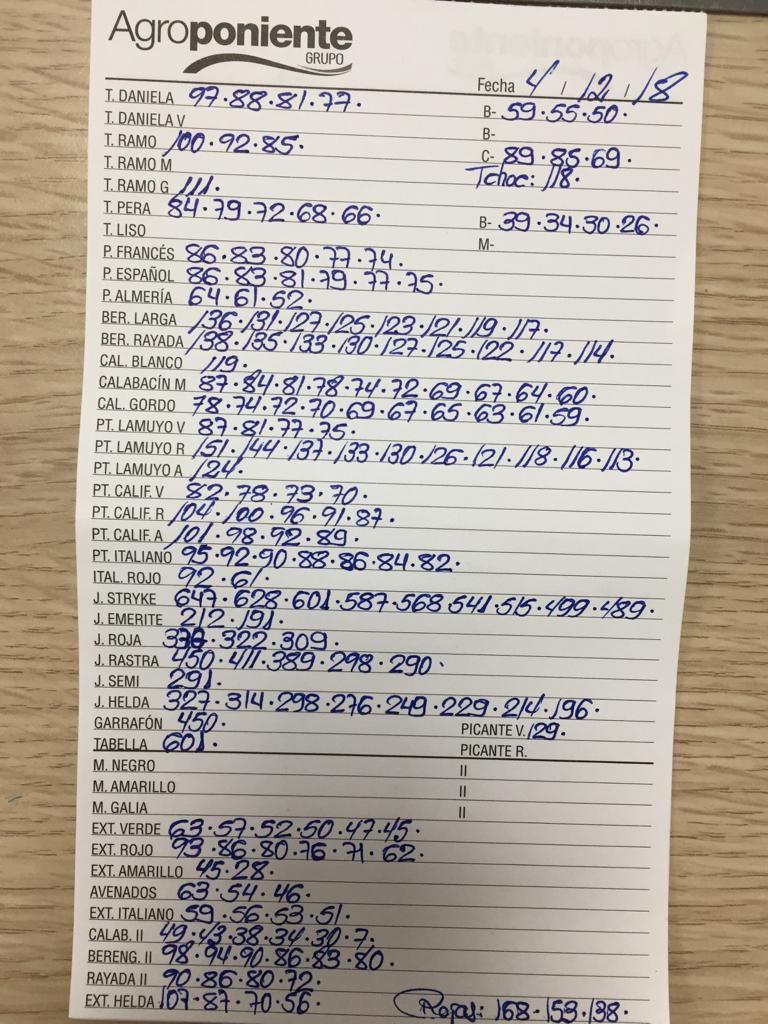 Agroponiente
GRUPO
Fecha 4 / 12 / 18
T. DANIELA 97·88·81·77· B- 59·55·50·
T. DANIELA V B-
T. RAMO 100·92·85· C- 89·85·69·
T. RAMO M Tchoc: 118·
T. RAMO G 111·
T. PERA 84·79·72·68·66· B- 39·34·30·26·
T. LISO M-
P. FRANCÉS 86·83·80·77·74·
P. ESPAÑOL 86·83·81·79·77·75·
P. ALMERÍA 64·61·52·
BER. LARGA 136·131·127·125·123·121·119·117·
BER. RAYADA 138·135·133·130·127·125·122·117·114·
CAL. BLANCO 119·
CALABACÍN M 87·84·81·78·74·72·69·67·64·60·
CAL. GORDO 78·74·72·70·69·67·65·63·61·59·
PT. LAMUYO V 87·81·77·75·
PT. LAMUYO R 151·144·137·133·130·126·121·118·116·113·
PT. LAMUYO A 124·
PT. CALIF. V 82·78·73·70·
PT. CALIF. R 104·100·96·91·87·
PT. CALIF. A 101·98·92·89·
PT. ITALIANO 95·92·90·88·86·84·82·
ITAL. ROJO 92·61·
J. STRYKE 647·628·601·587·568·541·515·499·489·
J. EMERITE 212·191·
J. ROJA 322·309·
J. RASTRA 450·411·389·298·290·
J. SEMI 291·
J. HELDA 327·314·298·276·249·229·214·196·
GARRAFÓN 450· PICANTE V. 129·
TABELLA 601· PICANTE R.
M. NEGRO II
M. AMARILLO II
M. GALIA II
EXT. VERDE 63·57·52·50·47·45·
EXT. ROJO 93·86·80·76·71·62·
EXT. AMARILLO 45·28·
AVENADOS 63·54·46·
EXT. ITALIANO 59·56·53·51·
CALAB. II 49·43·38·34·30·7·
BERENG. II 98·94·90·86·83·80·
RAYADA II 90·86·80·72·
EXT. HELDA 107·87·70·56· Rojas: 168·153·138·